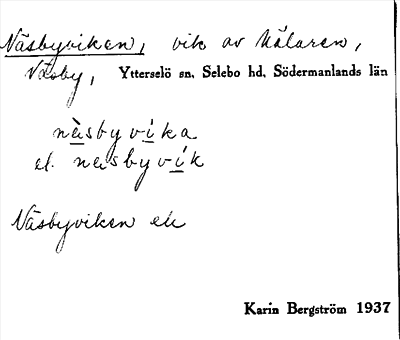 Näsbyviken, vik av Mälaren,
Väsby, Ytterselö sn, Selebo hd, Södermanlands län
nä̀sbyví̱ka
el. näsbyví̱k
Näsbyviken
Karin Bergström 1937